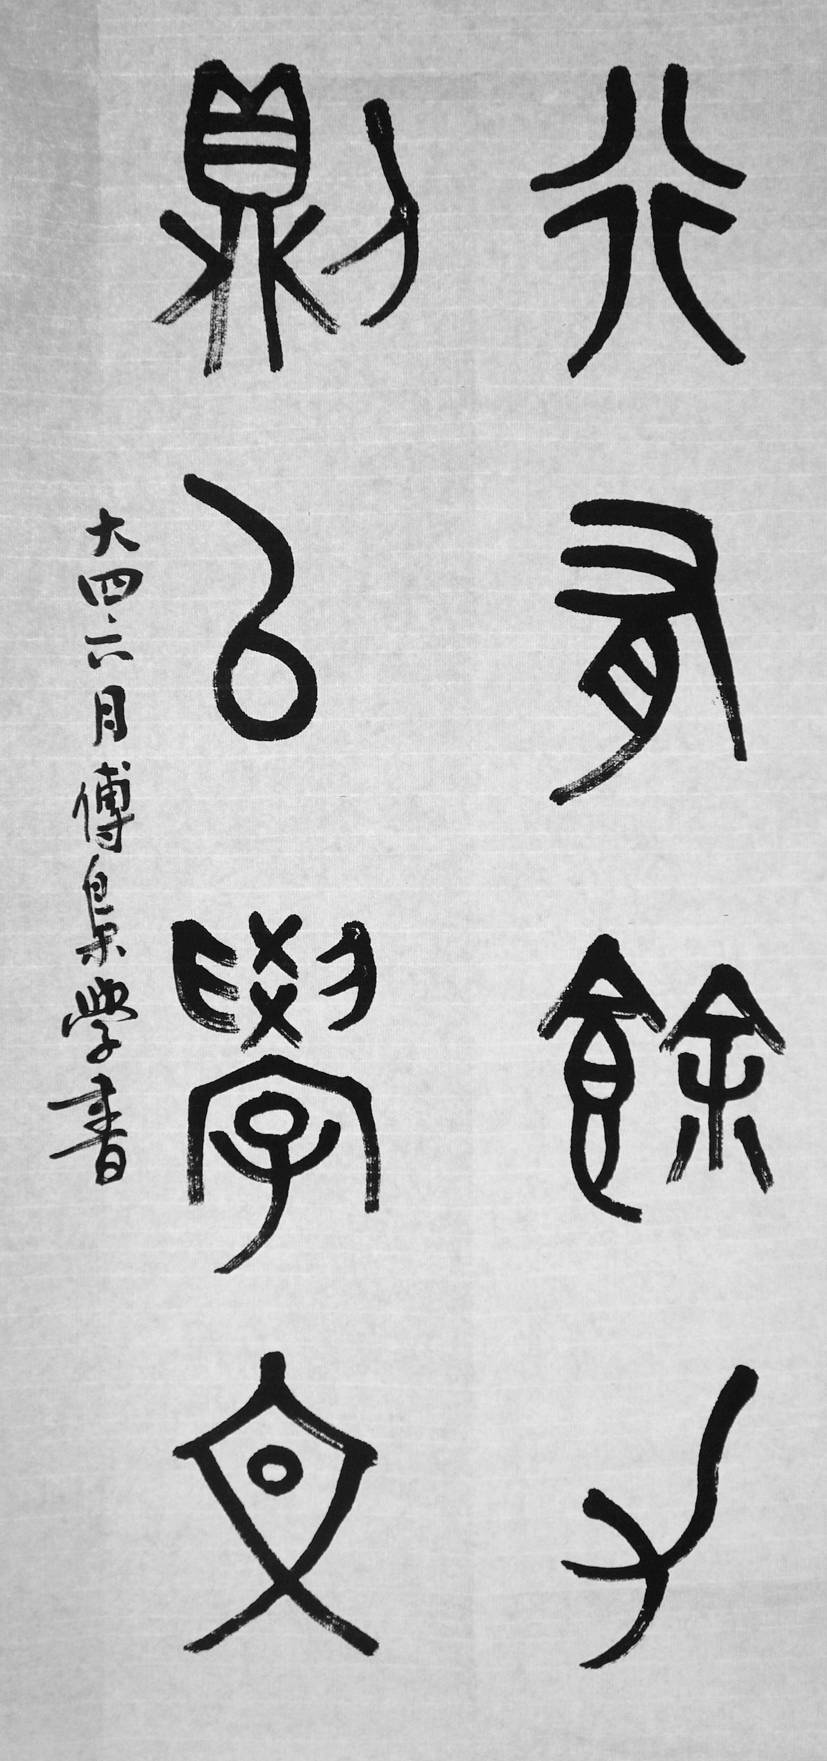 行有餘力
則以學文
大四六月傅梟學書